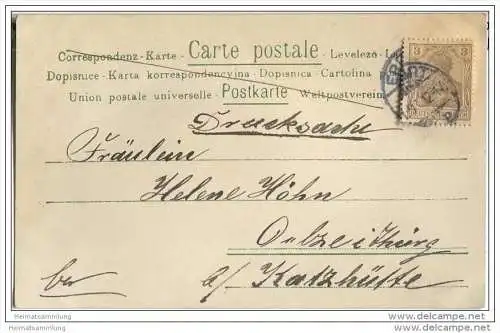 Correspondenz-Karte - Carte postale - Levelezo-
Dopisnice - Karta korrespondencyjna - Dopisnica - Cartolina
Union postale universelle. Postkarte Weltpostverein
3 3
Drucksache
Fräulein
Helene Höhn
Oelze i/Thürg
b/ Katzhütte
Heimatsammlung.de
Heimatsammlung.de
Heimatsammlung.de
Heimatsammlung.de